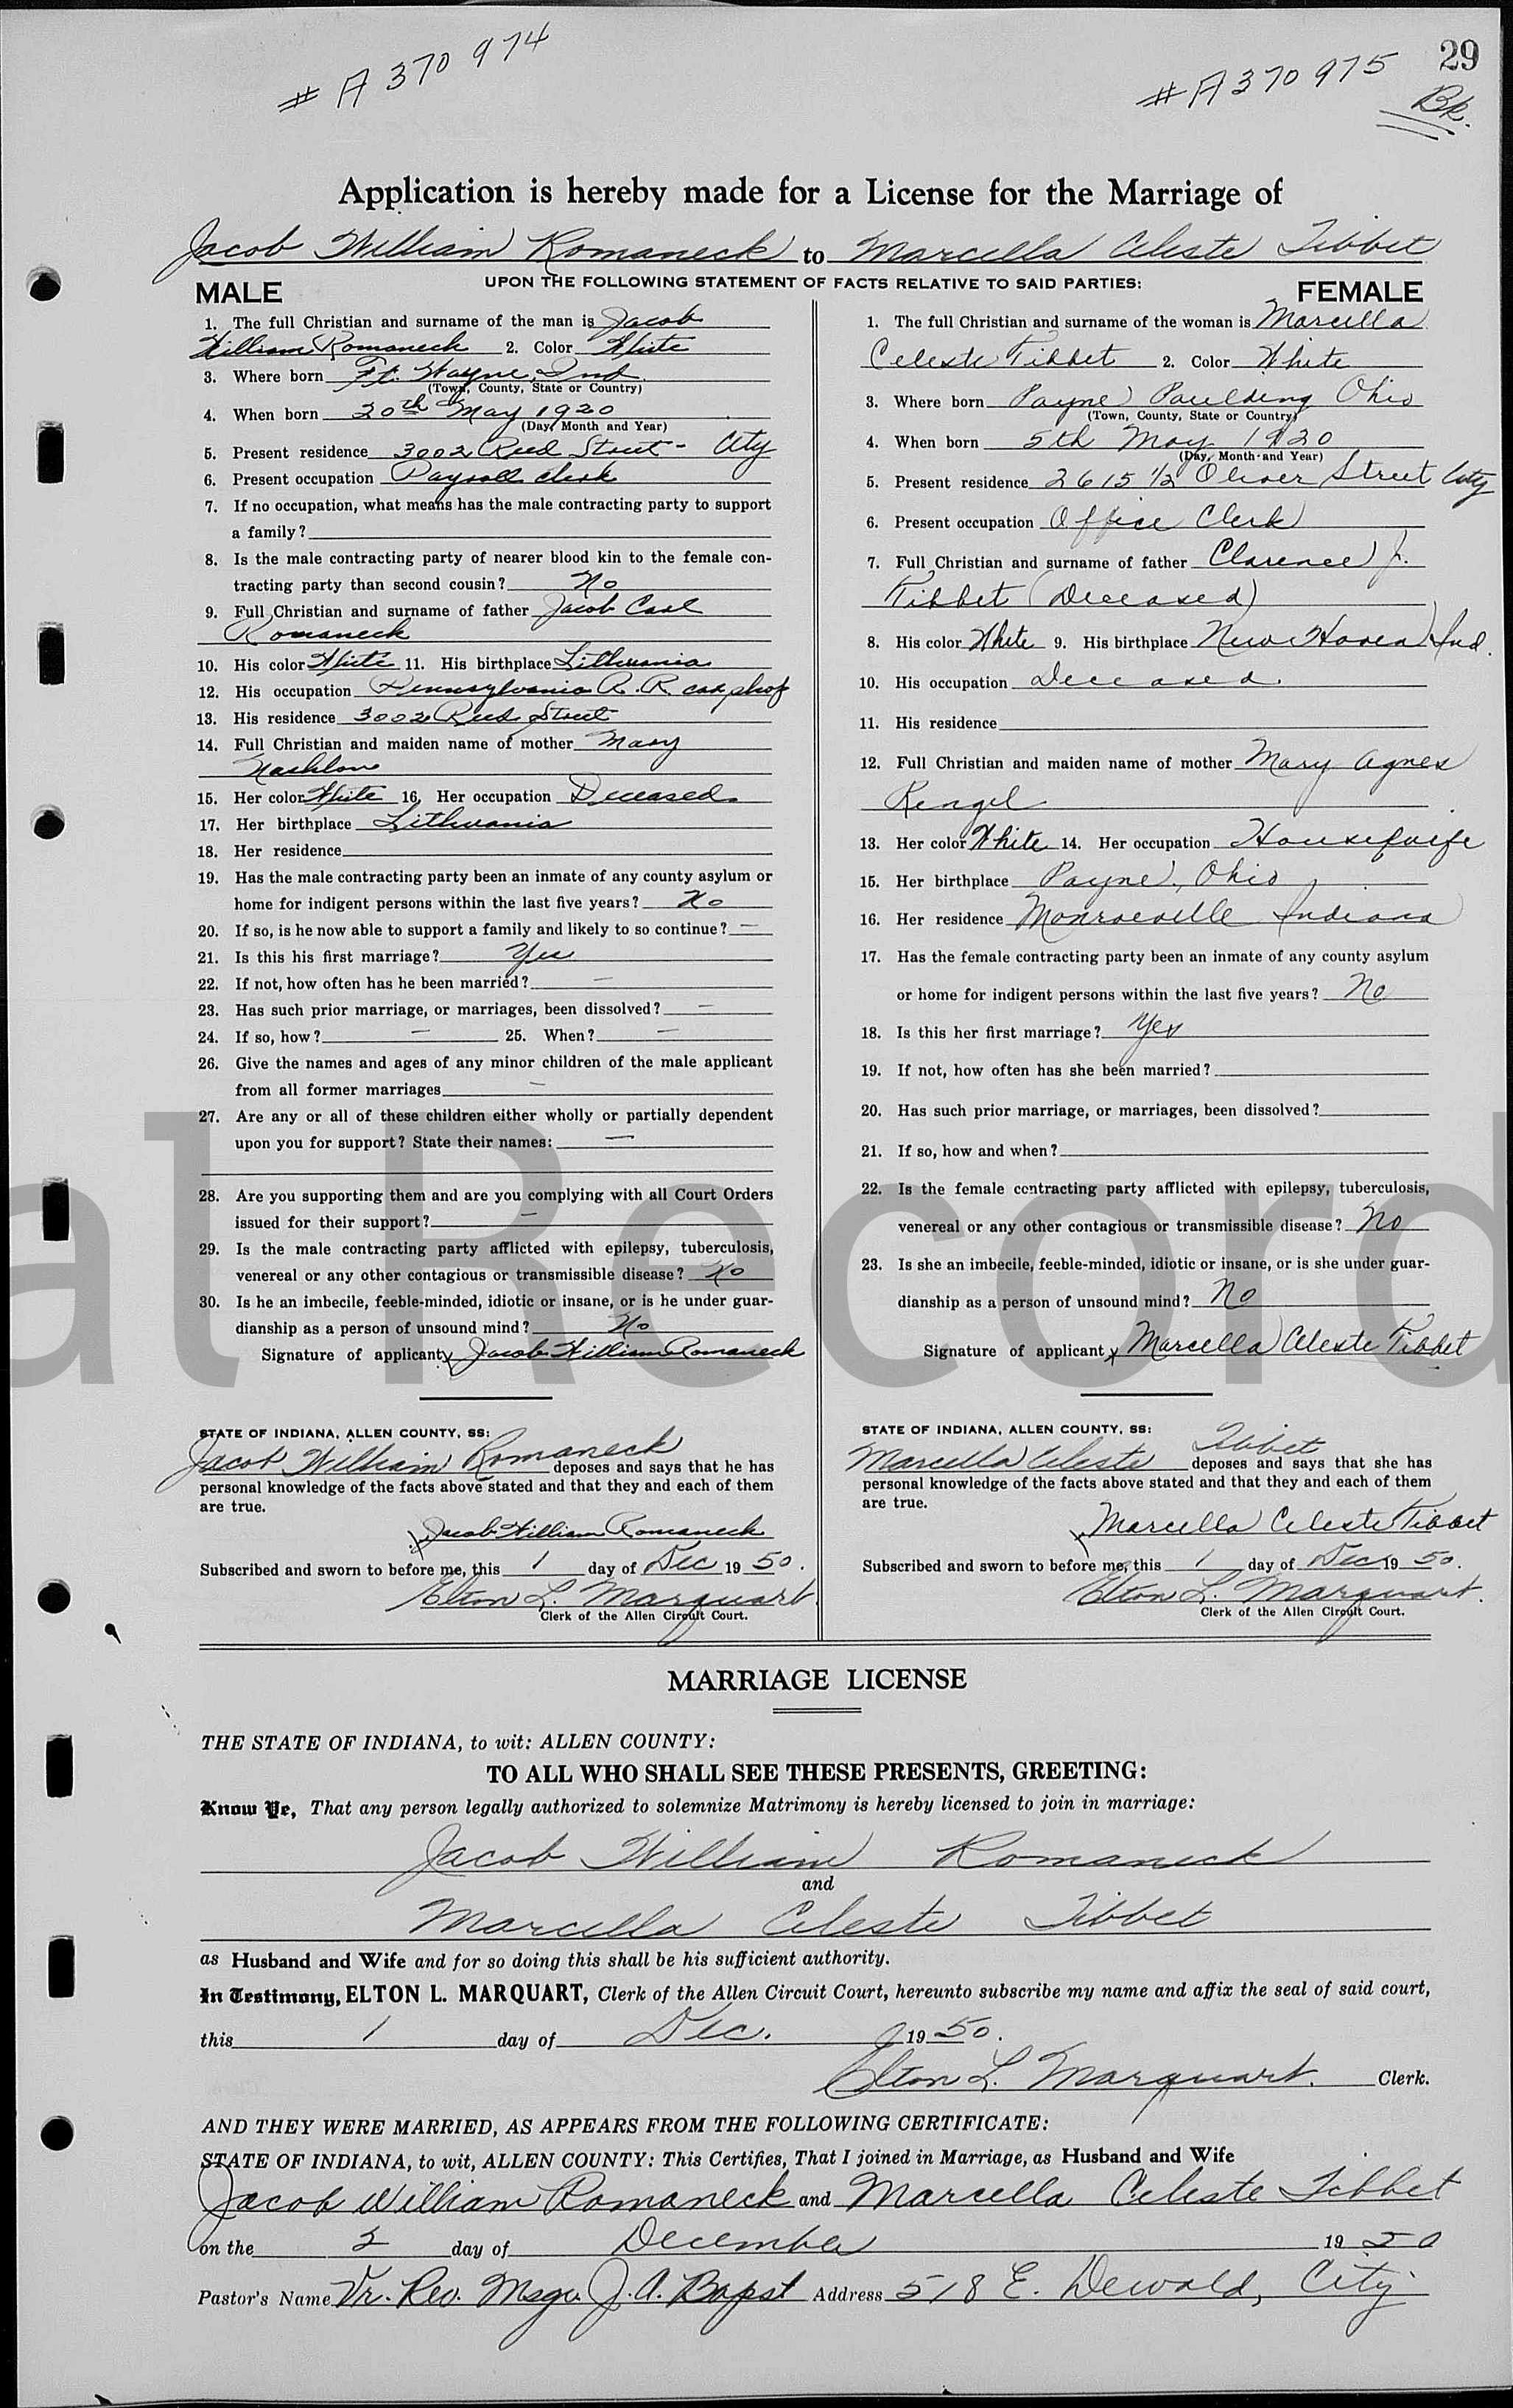 # A 370 974
# A 370 975
29
Bk.
Application is hereby made for a License for the Marriage of
Jacob William Romaneck to Marcella Celeste Tibbet
UPON THE FOLLOWING STATEMENT OF FACTS RELATIVE TO SAID PARTIES:
MALE
1. The full Christian and surname of the man is Jacob
William Romaneck 2. Color White
3. Where born Ft. Wayne, Ind.
(Town, County, State or Country)
4. When born 20th May 1920
(Day, Month and Year)
5. Present residence 3002 Reed Street - City
6. Present occupation Payroll clerk
7. If no occupation, what means has the male contracting party to support
a family?
8. Is the male contracting party of nearer blood kin to the female con-
tracting party than second cousin? No
9. Full Christian and surname of father Jacob Carl
Romaneck
10. His color White 11. His birthplace Lithuania
12. His occupation Pennsylvania R. R car shop
13. His residence 3002 Reed Street
14. Full Christian and maiden name of mother Mary
15. Her color White 16. Her occupation Deceased
17. Her birthplace Lithuania
18. Her residence
19. Has the male contracting party been an inmate of any county asylum or
home for indigent persons within the last five years? No
20. If so, is he now able to support a family and likely to so continue? —
21. Is this his first marriage? Yes
22. If not, how often has he been married? —
23. Has such prior marriage, or marriages, been dissolved? —
24. If so, how? — 25. When? —
26. Give the names and ages of any minor children of the male applicant
from all former marriages —
27. Are any or all of these children either wholly or partially dependent
upon you for support? State their names: —
28. Are you supporting them and are you complying with all Court Orders
issued for their support? —
29. Is the male contracting party afflicted with epilepsy, tuberculosis,
venereal or any other contagious or transmissible disease? No
30. Is he an imbecile, feeble-minded, idiotic or insane, or is he under guar-
dianship as a person of unsound mind? No
Signature of applicant x Jacob William Romaneck
STATE OF INDIANA, ALLEN COUNTY, SS:
Jacob William Romaneck deposes and says that he has
personal knowledge of the facts above stated and that they and each of them
are true.
x Jacob William Romaneck
Subscribed and sworn to before me, this 1 day of Dec 19 50.
Elton L. Marquart
Clerk of the Allen Circuit Court.
FEMALE
1. The full Christian and surname of the woman is Marcella
Celeste Tibbet 2. Color White
3. Where born Payne, Paulding Ohio
(Town, County, State or Country)
4. When born 5th May 1920
(Day, Month and Year)
5. Present residence 2615 1/2 Oliver Street City
6. Present occupation Office Clerk
7. Full Christian and surname of father Clarence J.
Tibbet (Deceased)
8. His color White 9. His birthplace New Haven, Ind.
10. His occupation Deceased.
11. His residence
12. Full Christian and maiden name of mother Mary Agnes
Rengel
13. Her color White 14. Her occupation Housewife
15. Her birthplace Payne, Ohio
16. Her residence Monroeville Indiana
17. Has the female contracting party been an inmate of any county asylum
or home for indigent persons within the last five years? No
18. Is this her first marriage? Yes
19. If not, how often has she been married?
20. Has such prior marriage, or marriages, been dissolved?
21. If so, how and when?
22. Is the female contracting party afflicted with epilepsy, tuberculosis,
venereal or any other contagious or transmissible disease? No
23. Is she an imbecile, feeble-minded, idiotic or insane, or is she under guar-
dianship as a person of unsound mind? No
Signature of applicant x Marcella Celeste Tibbet
STATE OF INDIANA, ALLEN COUNTY, SS:
Marcella Celeste Tibbet deposes and says that she has
personal knowledge of the facts above stated and that they and each of them
are true.
x Marcella Celeste Tibbet
Subscribed and sworn to before me, this 1 day of Dec 19 50.
Elton L. Marquart.
Clerk of the Allen Circuit Court.
al Record
MARRIAGE LICENSE
THE STATE OF INDIANA, to wit: ALLEN COUNTY:
TO ALL WHO SHALL SEE THESE PRESENTS, GREETING:
Know Ye, That any person legally authorized to solemnize Matrimony is hereby licensed to join in marriage:
Jacob William Romaneck
and
Marcella Celeste Tibbet
as Husband and Wife and for so doing this shall be his sufficient authority.
In Testimony, ELTON L. MARQUART, Clerk of the Allen Circuit Court, hereunto subscribe my name and affix the seal of said court,
this 1 day of Dec. 19 50.
Elton L. Marquart. Clerk.
AND THEY WERE MARRIED, AS APPEARS FROM THE FOLLOWING CERTIFICATE:
STATE OF INDIANA, to wit, ALLEN COUNTY: This Certifies, That I joined in Marriage, as Husband and Wife
Jacob William Romaneck and Marcella Celeste Tibbet
on the 2 day of December 19 50
Pastor's Name Vr. Rev. Msgr. J. A. Bapst Address 518 E. Dewald, City